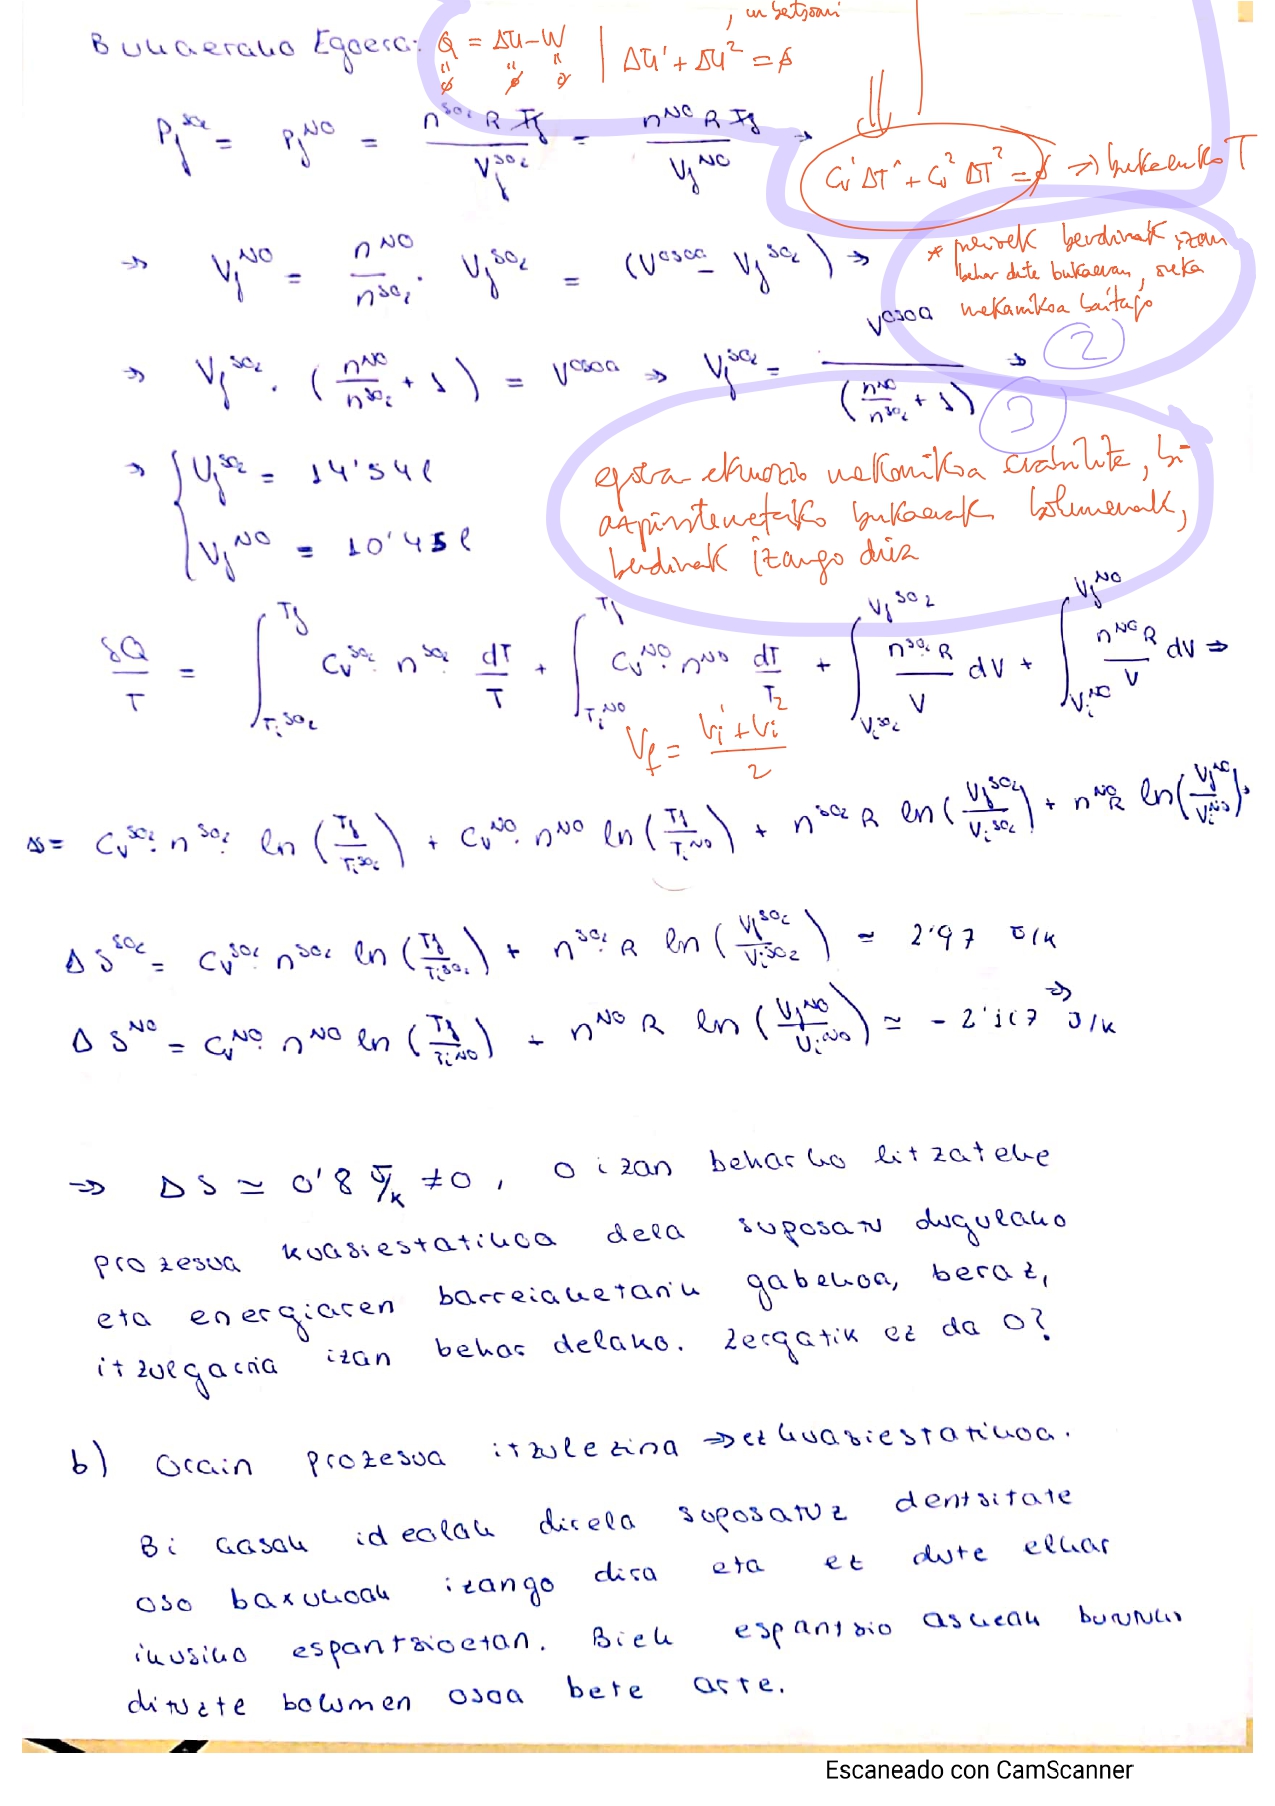 , in betseani
Bukaerako Egoera: Q = ΔU - W | ΔU¹ + ΔU² = ∅
" " "
∅ ∅ ∅
P_f^SO₂ = P_f^NO = n^SO₂ R T_f / V_f^SO₂ = n^NO R T_f / V_f^NO →
Cv¹ ΔT¹ + Cv² ΔT² = ∅ → bukaerako T
→ V_f^NO = n^NO / n^SO₂ · V_f^SO₂ = (V^osoa - V_f^SO₂) →
* presioek berdinak izan
behar dute bukaeran, oreka
mekanikoa baitago
2
→ V_f^SO₂ · (n^NO / n^SO₂ + 1) = V^osoa → V_f^SO₂ = V^osoa / (n^NO / n^SO₂ + 1) →
3
→ { V_f^SO₂ = 14'54 l
V_f^NO = 10'45 l
egoera-ekuazio mekanikoa erabilita, bi
azpisistemetako bukaerak bolumenak,
berdinak izango dira
δQ / T = ∫_{T_i^SO₂}^{T_f} Cv^SO₂ n^SO₂ dT / T + ∫_{T_i^NO}^{T_f} Cv^NO n^NO dT / T + ∫_{V_i^SO₂}^{V_f^SO₂} n^SO₂ R / V dV + ∫_{V_i^NO}^{V_f^NO} n^NO R / V dV ⇒
V_f = V_i¹ + V_i² / 2
ΔS = Cv^SO₂ n^SO₂ ln (T_f / T_i^SO₂) + Cv^NO n^NO ln (T_f / T_i^NO) + n^SO₂ R ln (V_f^SO₂ / V_i^SO₂) + n^NO R ln (V_f^NO / V_i^NO)
ΔS^SO₂ = Cv^SO₂ n^SO₂ ln (T_f / T_i^SO₂) + n^SO₂ R ln (V_f^SO₂ / V_i^SO₂) ≃ 2'97 J/K
ΔS^NO = Cv^NO n^NO ln (T_f / T_i^NO) + n^NO R ln (V_f^NO / V_i^NO) ≃ J/K ⇒
⇒ ΔS ≃ 0'8 J/K ≠ 0, 0 izan beharko litzateke
prozesua kuasiestatikoa dela suposatu dugulako
eta energiaren barreiaketarik gabekoa, beraz,
itzulgarria izan behar delako. Zergatik ez da 0?
b) Orain prozesua itzulezina ⇒ ez kuasiestatikoa.
Bi gasak idealak direla suposatuz dentsitate
oso baxukoak izango dira eta ez dute elkar
ikusiko espantsioetan. Biek espantsio askeak burutuko
dituzte bolumen osoa bete arte.
Escaneado con CamScanner